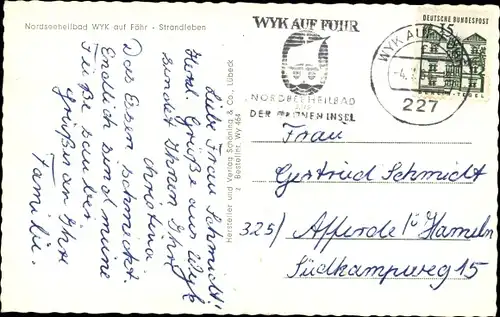 Nordseeheilbad WYK auf Föhr - Strandleben
Liebe Frau Schmidt!
Herzl. Grüße aus Wyk
sendet Ihnen Ihre
Christina
Das Essen schmeckt.
Endlich sind meine
Füße sauber.
Grüßen an Ihre
Familie.
Hersteller und Verlag Schöning & Co., Lübeck
Bestellnr. Wy 464
WYK AUF FÖHR
NORDSEEHEILBAD
DER GRÜNEN INSEL
WYK AUF
227
DEUTSCHE BUNDESPOST
15
Frau
Gertrud Schmidt
325/ Afferde b/ Hameln
Südkampweg 15